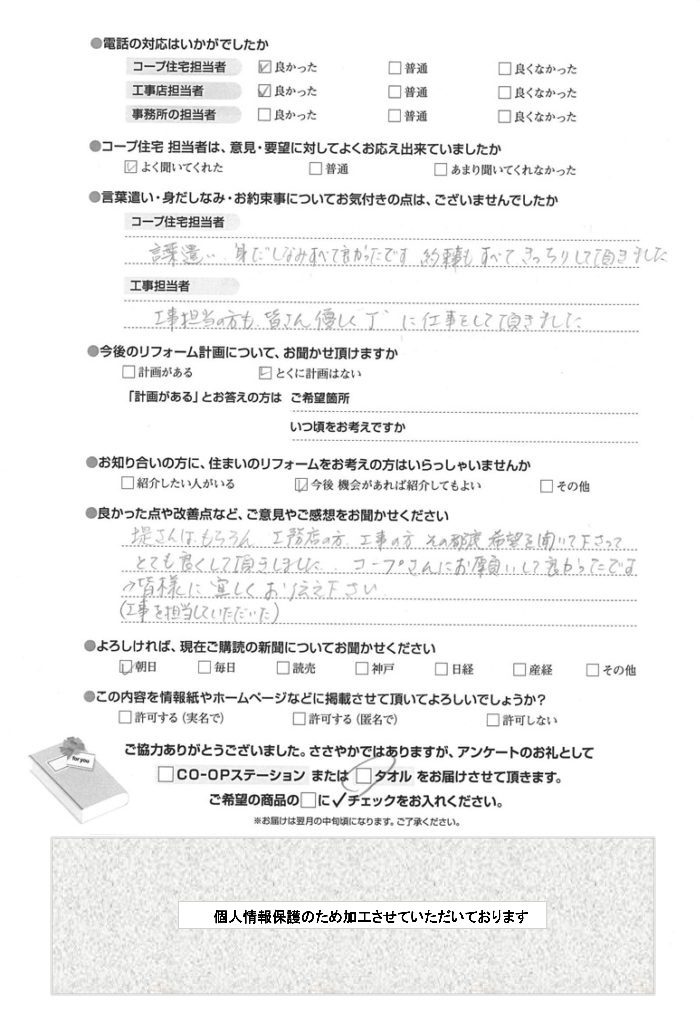 ●電話の対応はいかがでしたか
コープ住宅担当者 ☑良かった □普通 □良くなかった
工事店担当者 ☑良かった □普通 □良くなかった
事務所の担当者 □良かった □普通 □良くなかった
●コープ住宅 担当者は、意見・要望に対してよくお応え出来ていましたか
☑よく聞いてくれた □普通 □あまり聞いてくれなかった
●言葉遣い・身だしなみ・お約束事についてお気付きの点は、ございませんでしたか
コープ住宅担当者
言葉遣い、身だしなみすべて良かったです 約束もすべてきっちりして頂きました
工事担当者
工事担当の方も、皆さん優しく丁〃に仕事をして頂きました
●今後のリフォーム計画について、お聞かせ頂けますか
□計画がある ☑とくに計画はない
「計画がある」とお答えの方は ご希望箇所
いつ頃をお考えですか
●お知り合いの方に、住まいのリフォームをお考えの方はいらっしゃいませんか
□紹介したい人がいる ☑今後 機会があれば紹介してもよい □その他
●良かった点や改善点など、ご意見やご感想をお聞かせください
堤さんはもちろん 工務店の方、工事の方 その都度 希望を聞いて下さって
とても良くして頂きました コープさんにお願いして良かったです
→皆様に宜しくお伝え下さい
(工事を担当していただいた)
●よろしければ、現在ご購読の新聞についてお聞かせください
☑朝日 □毎日 □読売 □神戸 □日経 □産経 □その他
●この内容を情報紙やホームページなどに掲載させて頂いてよろしいでしょうか？
□許可する（実名で） □許可する（匿名で） □許可しない
for you
ご協力ありがとうございました。ささやかではありますが、アンケートのお礼として
□CO-OPステーション または □タオル をお届けさせて頂きます。
ご希望の商品の□に✓チェックをお入れください。
※お届けは翌月の中旬頃になります。ご了承ください。
個人情報保護のため加工させていただいております